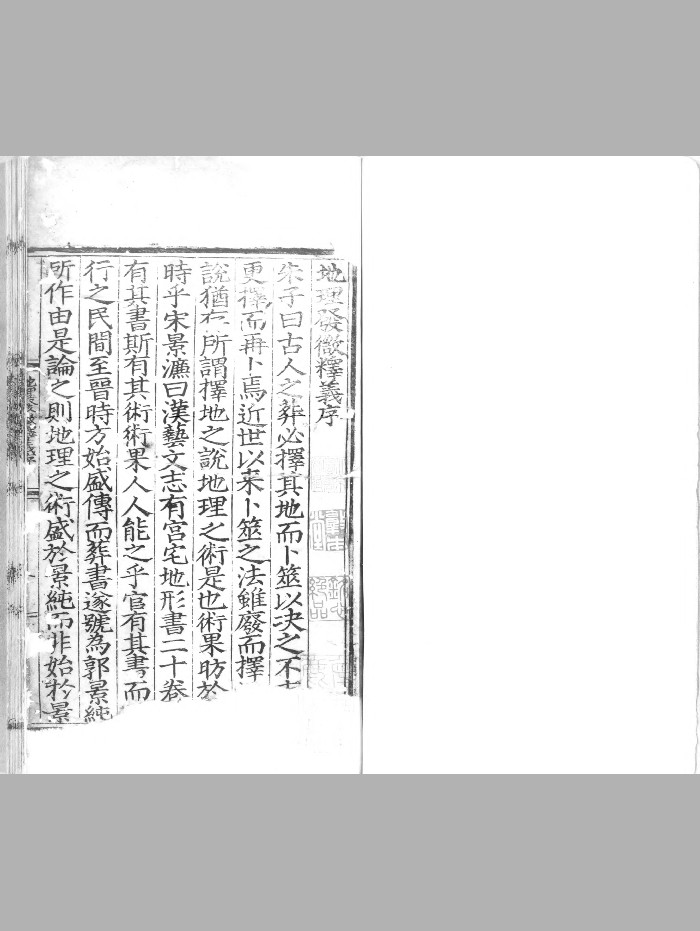 地理發微釋義序
朱子曰古人之葬必擇其地而卜筮以决之不
更擇而再卜焉近世以来卜筮之法雖廢而擇
說猶存所謂擇地之說地理之術是也術果昉於
時乎宋景濂曰漢藝文志有宫宅地形書二十卷
有其書斯有其術術果人人能之乎官有其書而
行之民間至晉時方始盛傳而葬書遂號為郭景純
所作由是論之則地理之術盛於景純而非始於景